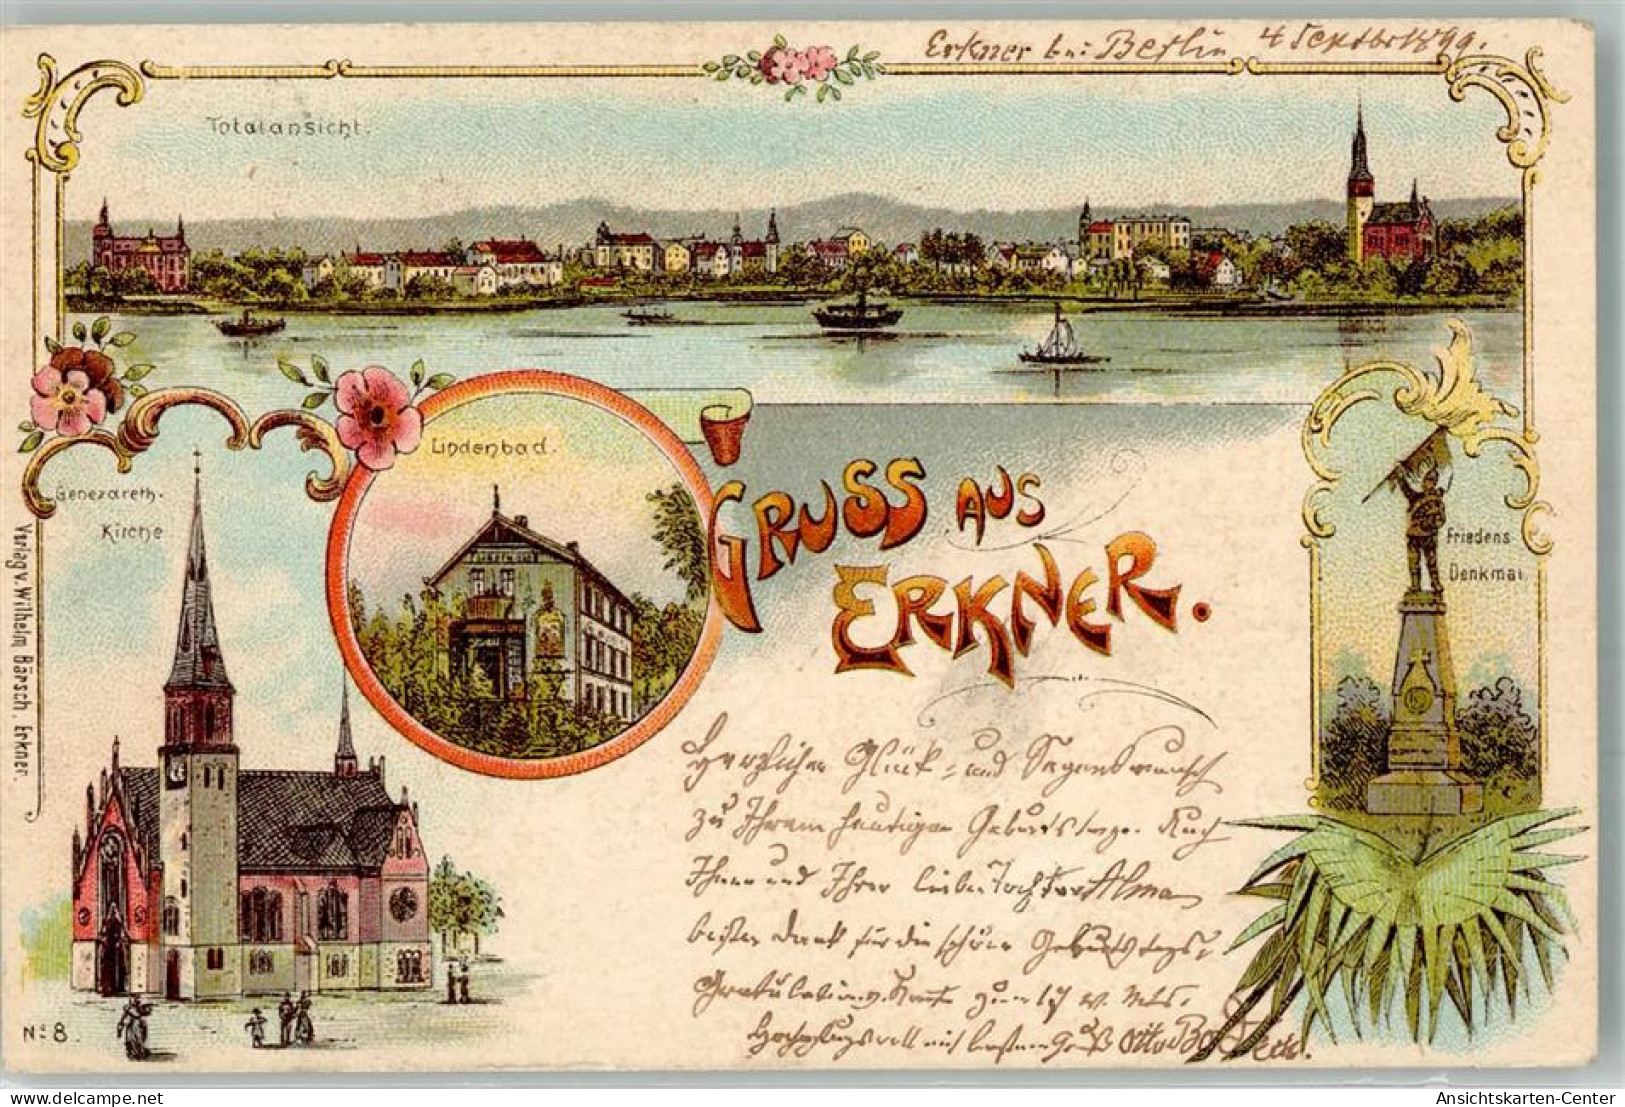 Erkner bei Berlin 4 Septbr 1899.
Totalansicht.
Lindenbad.
Genezareth-
Kirche
Verlag v. Wilhelm Bärsch, Erkner.
GRUSS AUS
ERKNER.
Friedens
Denkmal
Herzlichen Glück- und Segenswunsch
zu Ihrem heutigen Geburtstage. Auch
Ihnen und Ihrer lieben Tochter Alma
besten Dank für die schöne Geburtstags-
Gratulations Karte zum 17 v. Mts.
Hochachtungsvoll mit bestem Gruß Otto
No 8.
Ansichtskarten-Center
www.delcampe.net